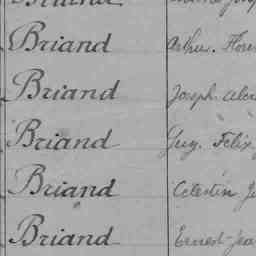 Briand Arthur. Flore
Briand Joseph. Alex
Briand Guy. Félix
Briand Célestin. Je
Briand Ernest-Jea